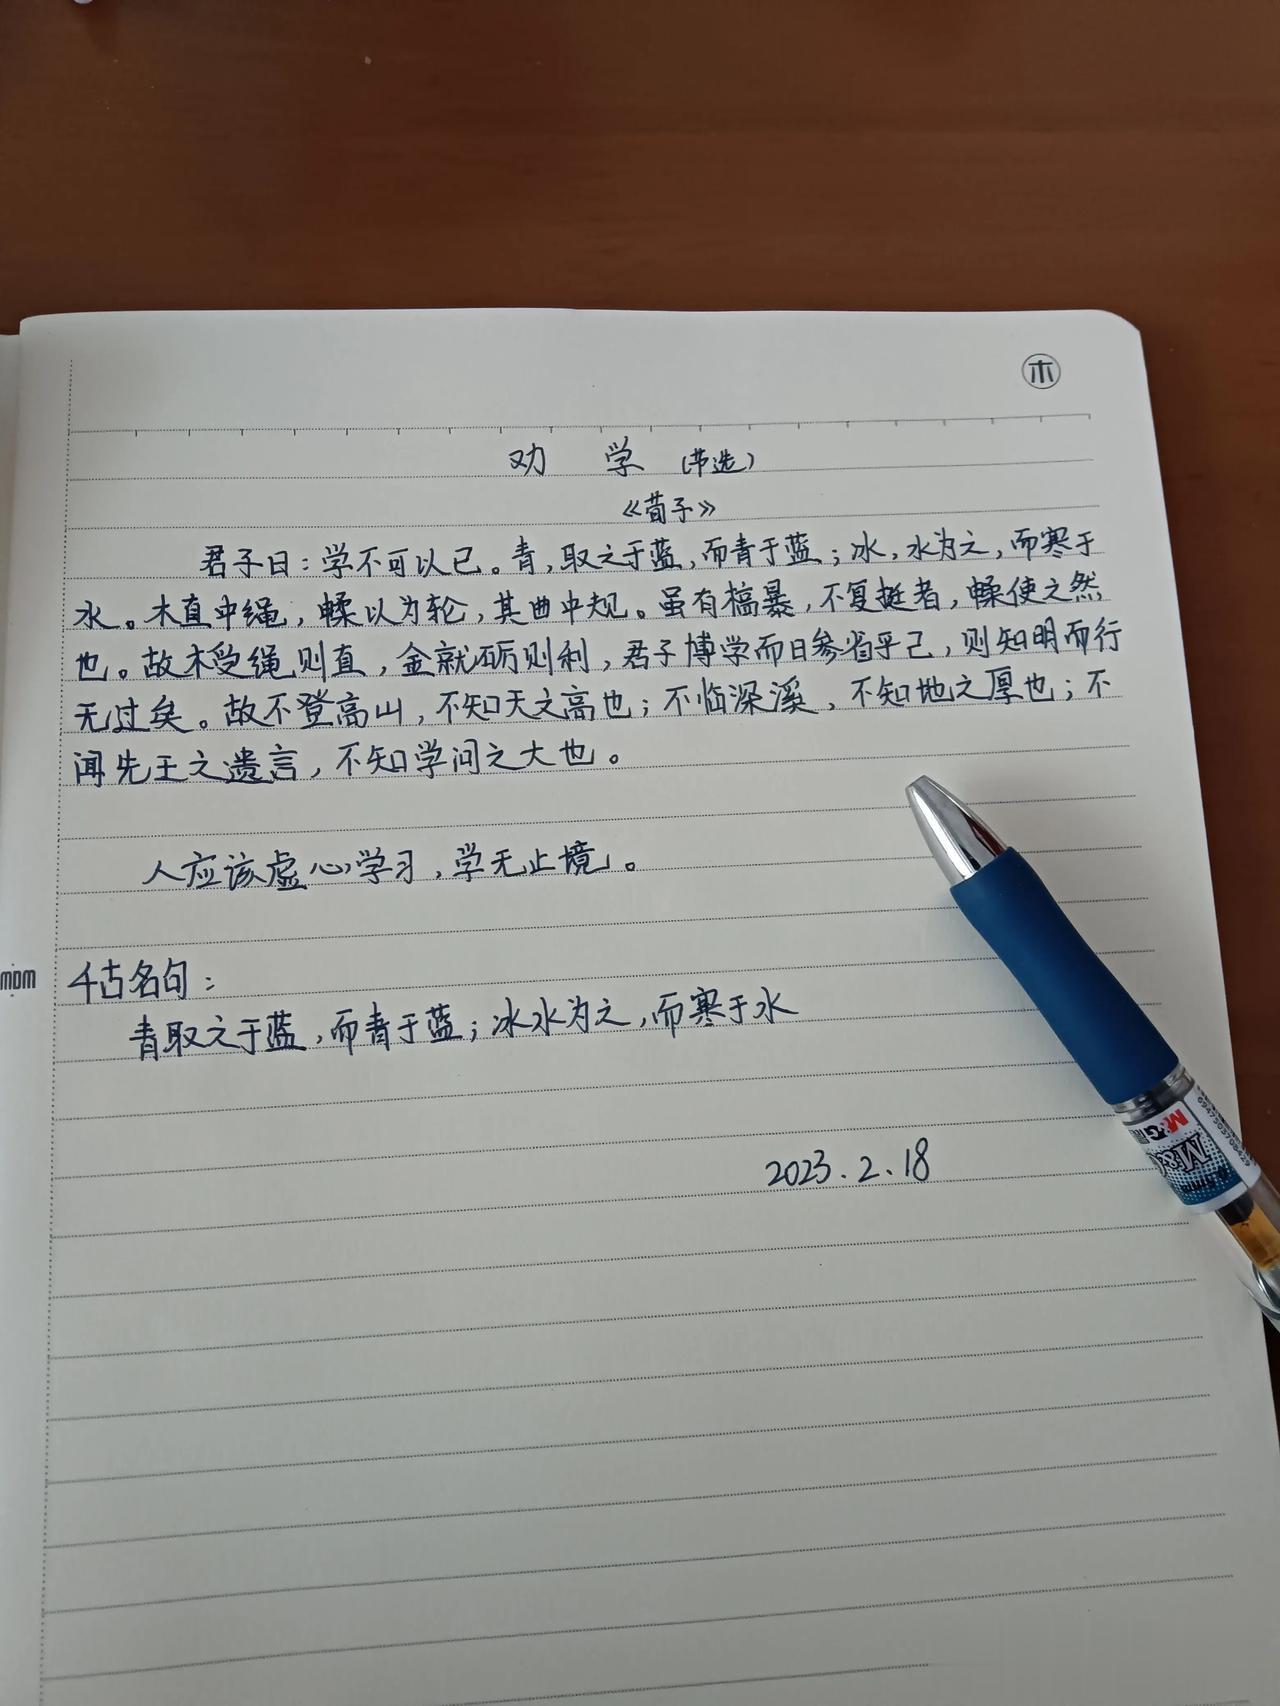 木
劝 学 (节选)
《荀子》
君子曰：学不可以已。青，取之于蓝，而青于蓝；冰，水为之，而寒于
水。木直中绳，𫐓以为轮，其曲中规。虽有槁暴，不复挺者，𫐓使之然
也。故木受绳则直，金就砺则利，君子博学而日参省乎己，则知明而行
无过矣。故不登高山，不知天之高也；不临深溪，不知地之厚也；不
闻先王之遗言，不知学问之大也。
人应该虚心学习，学无止境。
mom
千古名句：
青取之于蓝，而青于蓝；冰水为之，而寒于水
2023.2.18
M&G